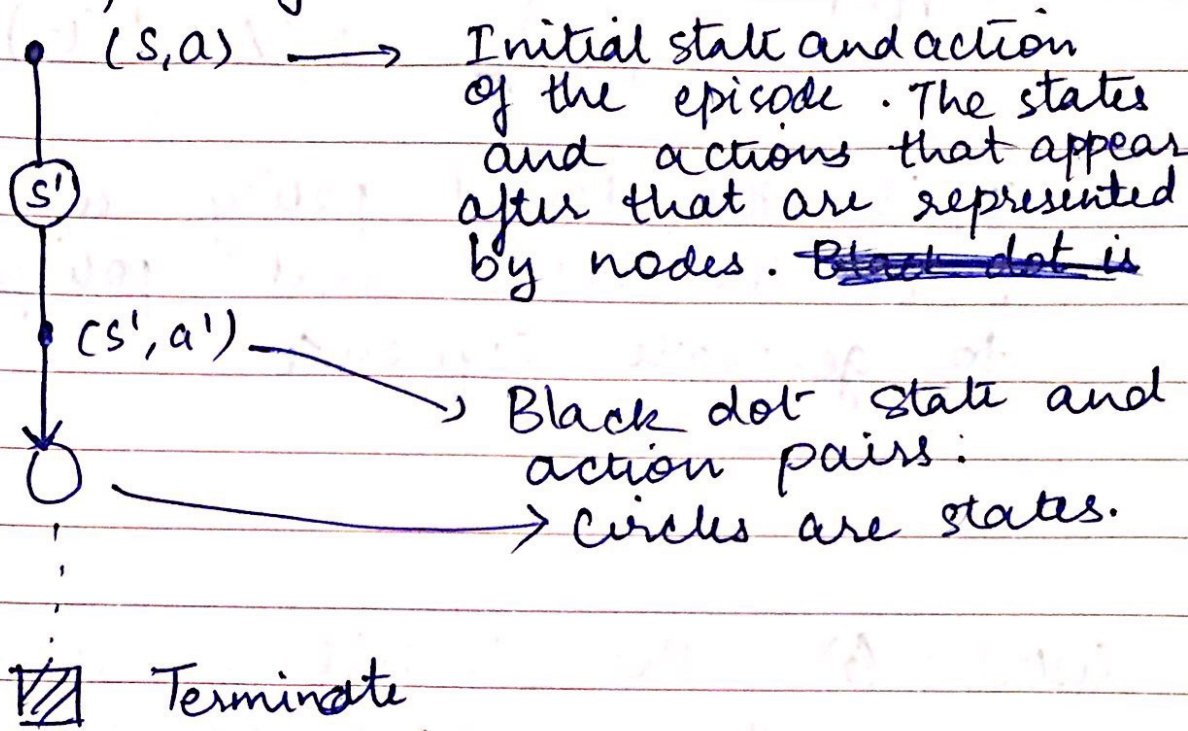 (S,a) → Initial state and action
of the episode. The states
and actions that appear
after that are represented
by nodes. Black dot is
S'
(S',a')
Black dot state and
action pairs:
Circles are states.
Terminate